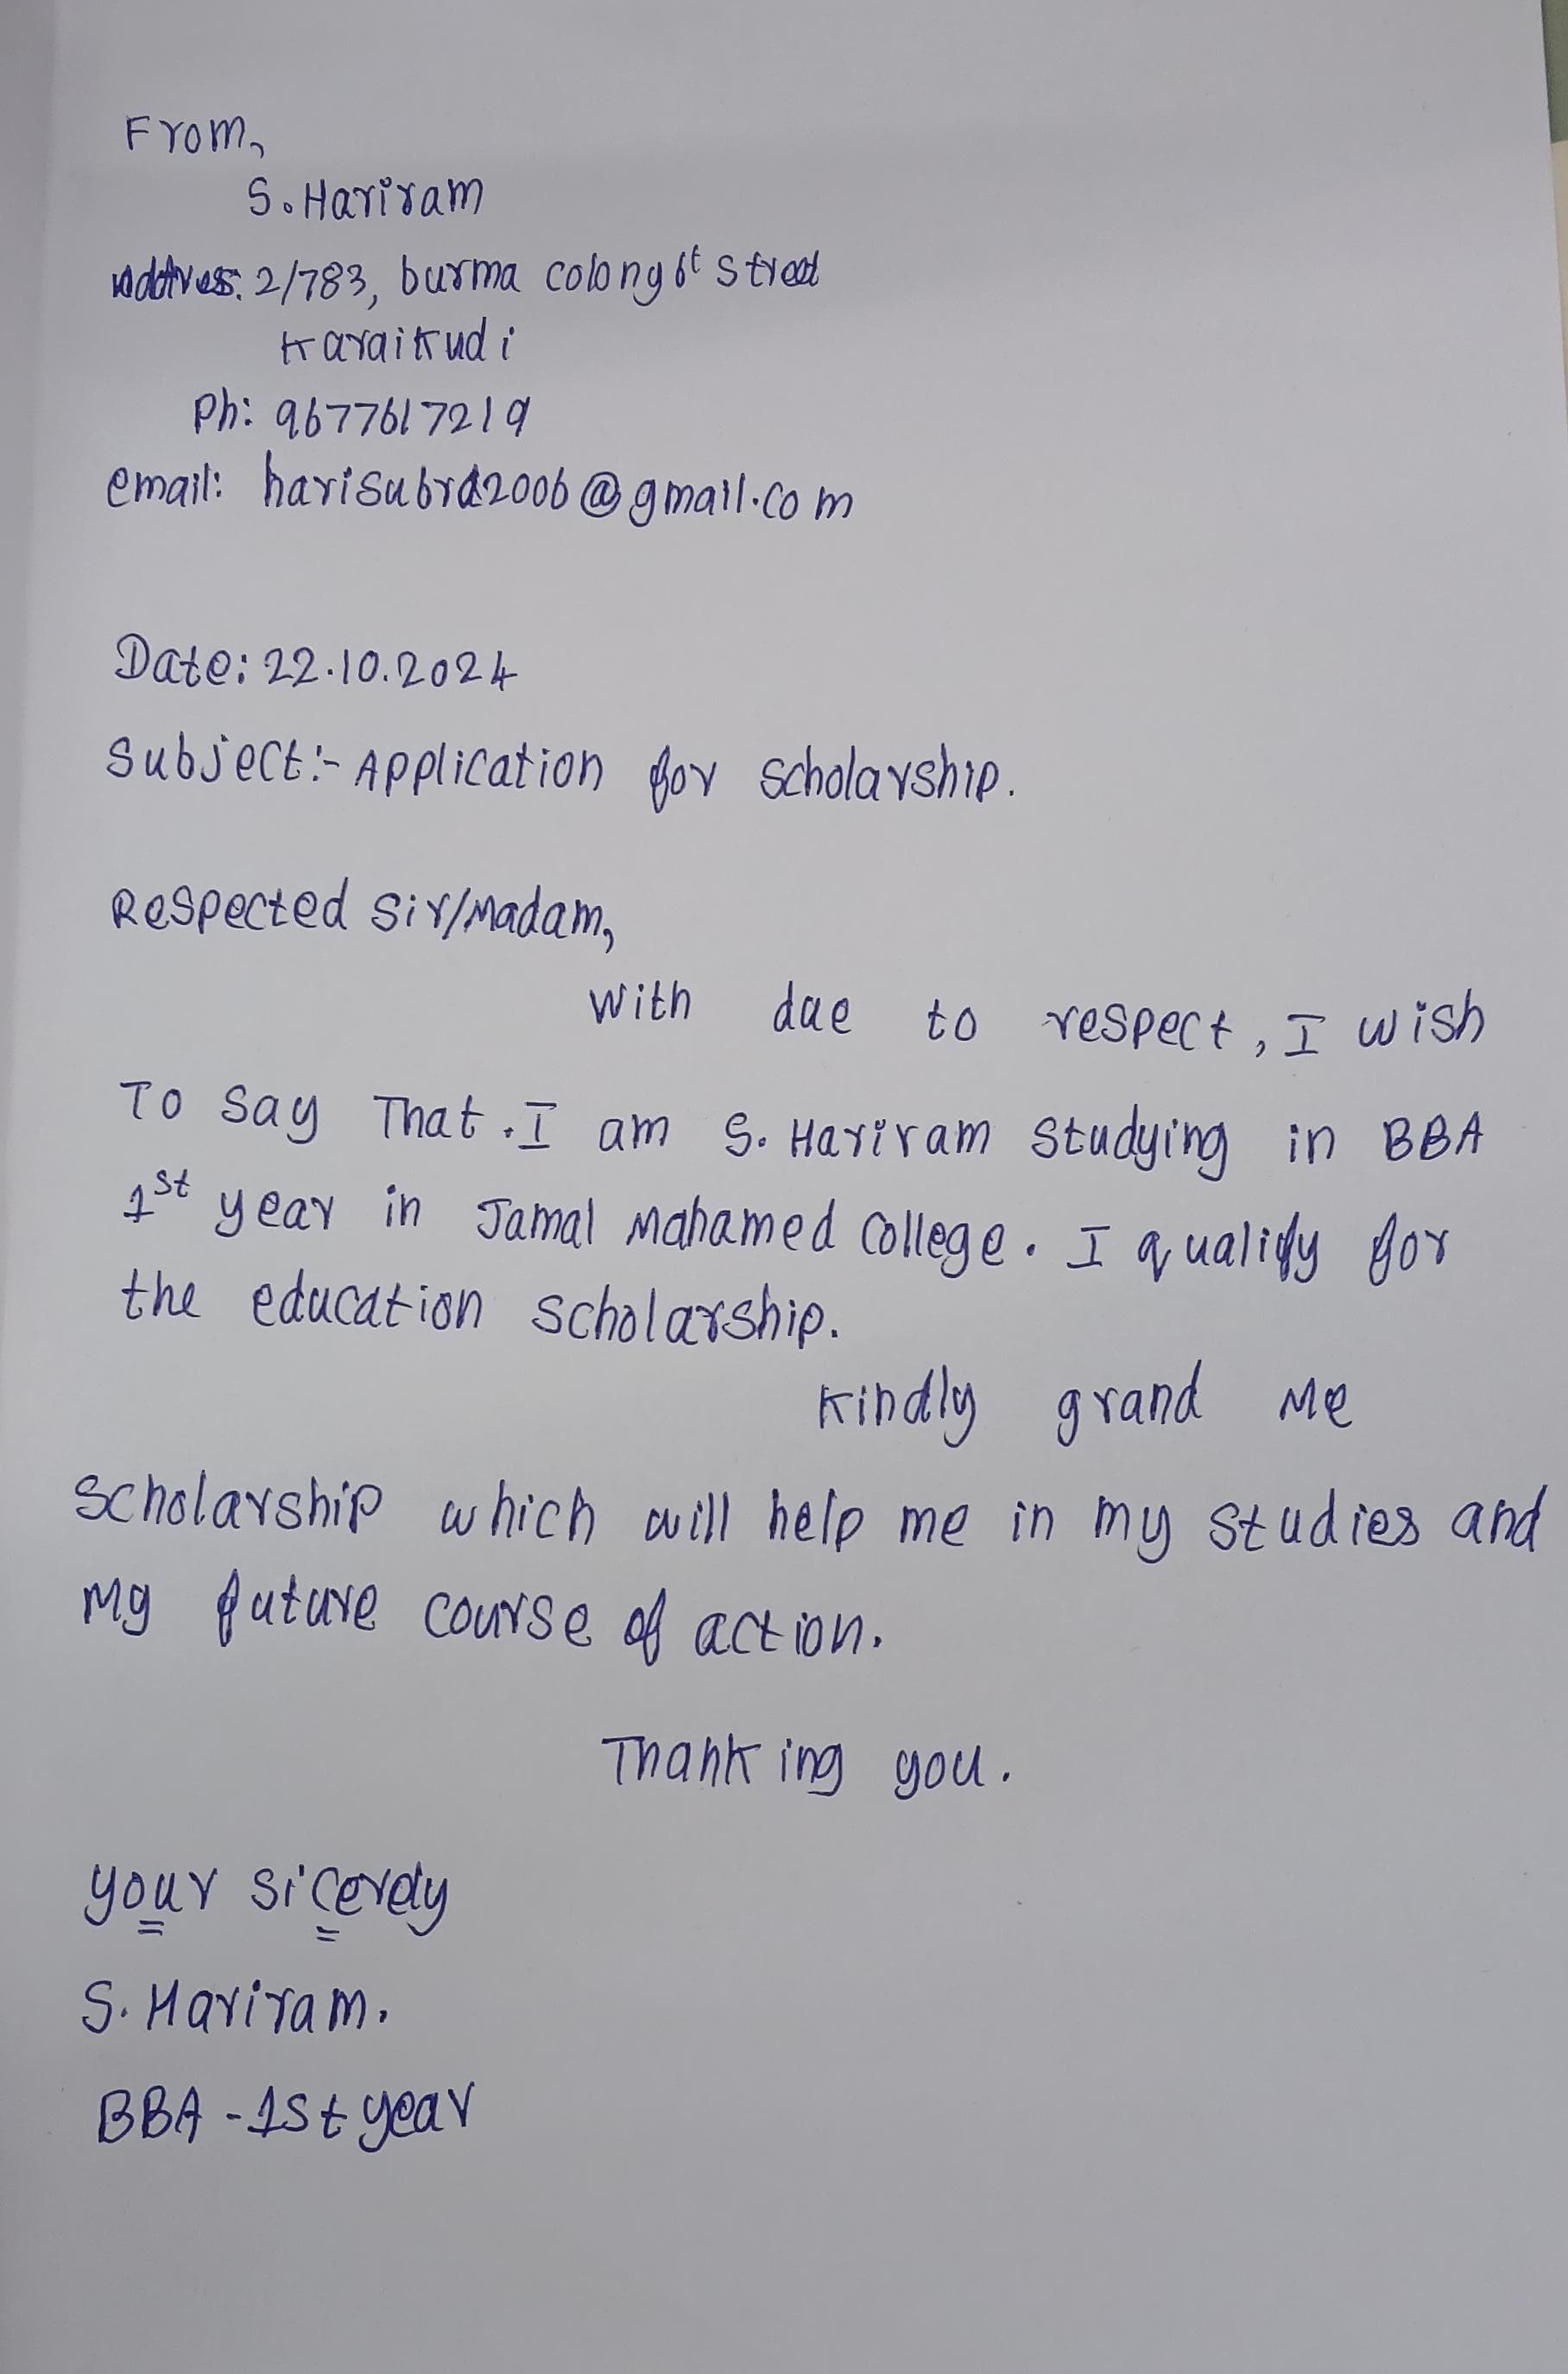 From,
S. Hariram
Address: 2/783, burma colony 6t street
Karaikudi
Ph: 9677617219
email: harisubra2006@gmail.com
Date: 22.10.2024
Subject:- Application for scholarship.
Respected Sir/Madam,
With due to respect, I wish
To say That. I am S. Hariram Studying in BBA
1st year in Jamal Mahamed College. I qualify for
the education scholarship.
Kindly grand me
Scholarship which will help me in my studies and
my future course of action.
Thanking you.
your sicerely
S. Hariram.
BBA - 1st year